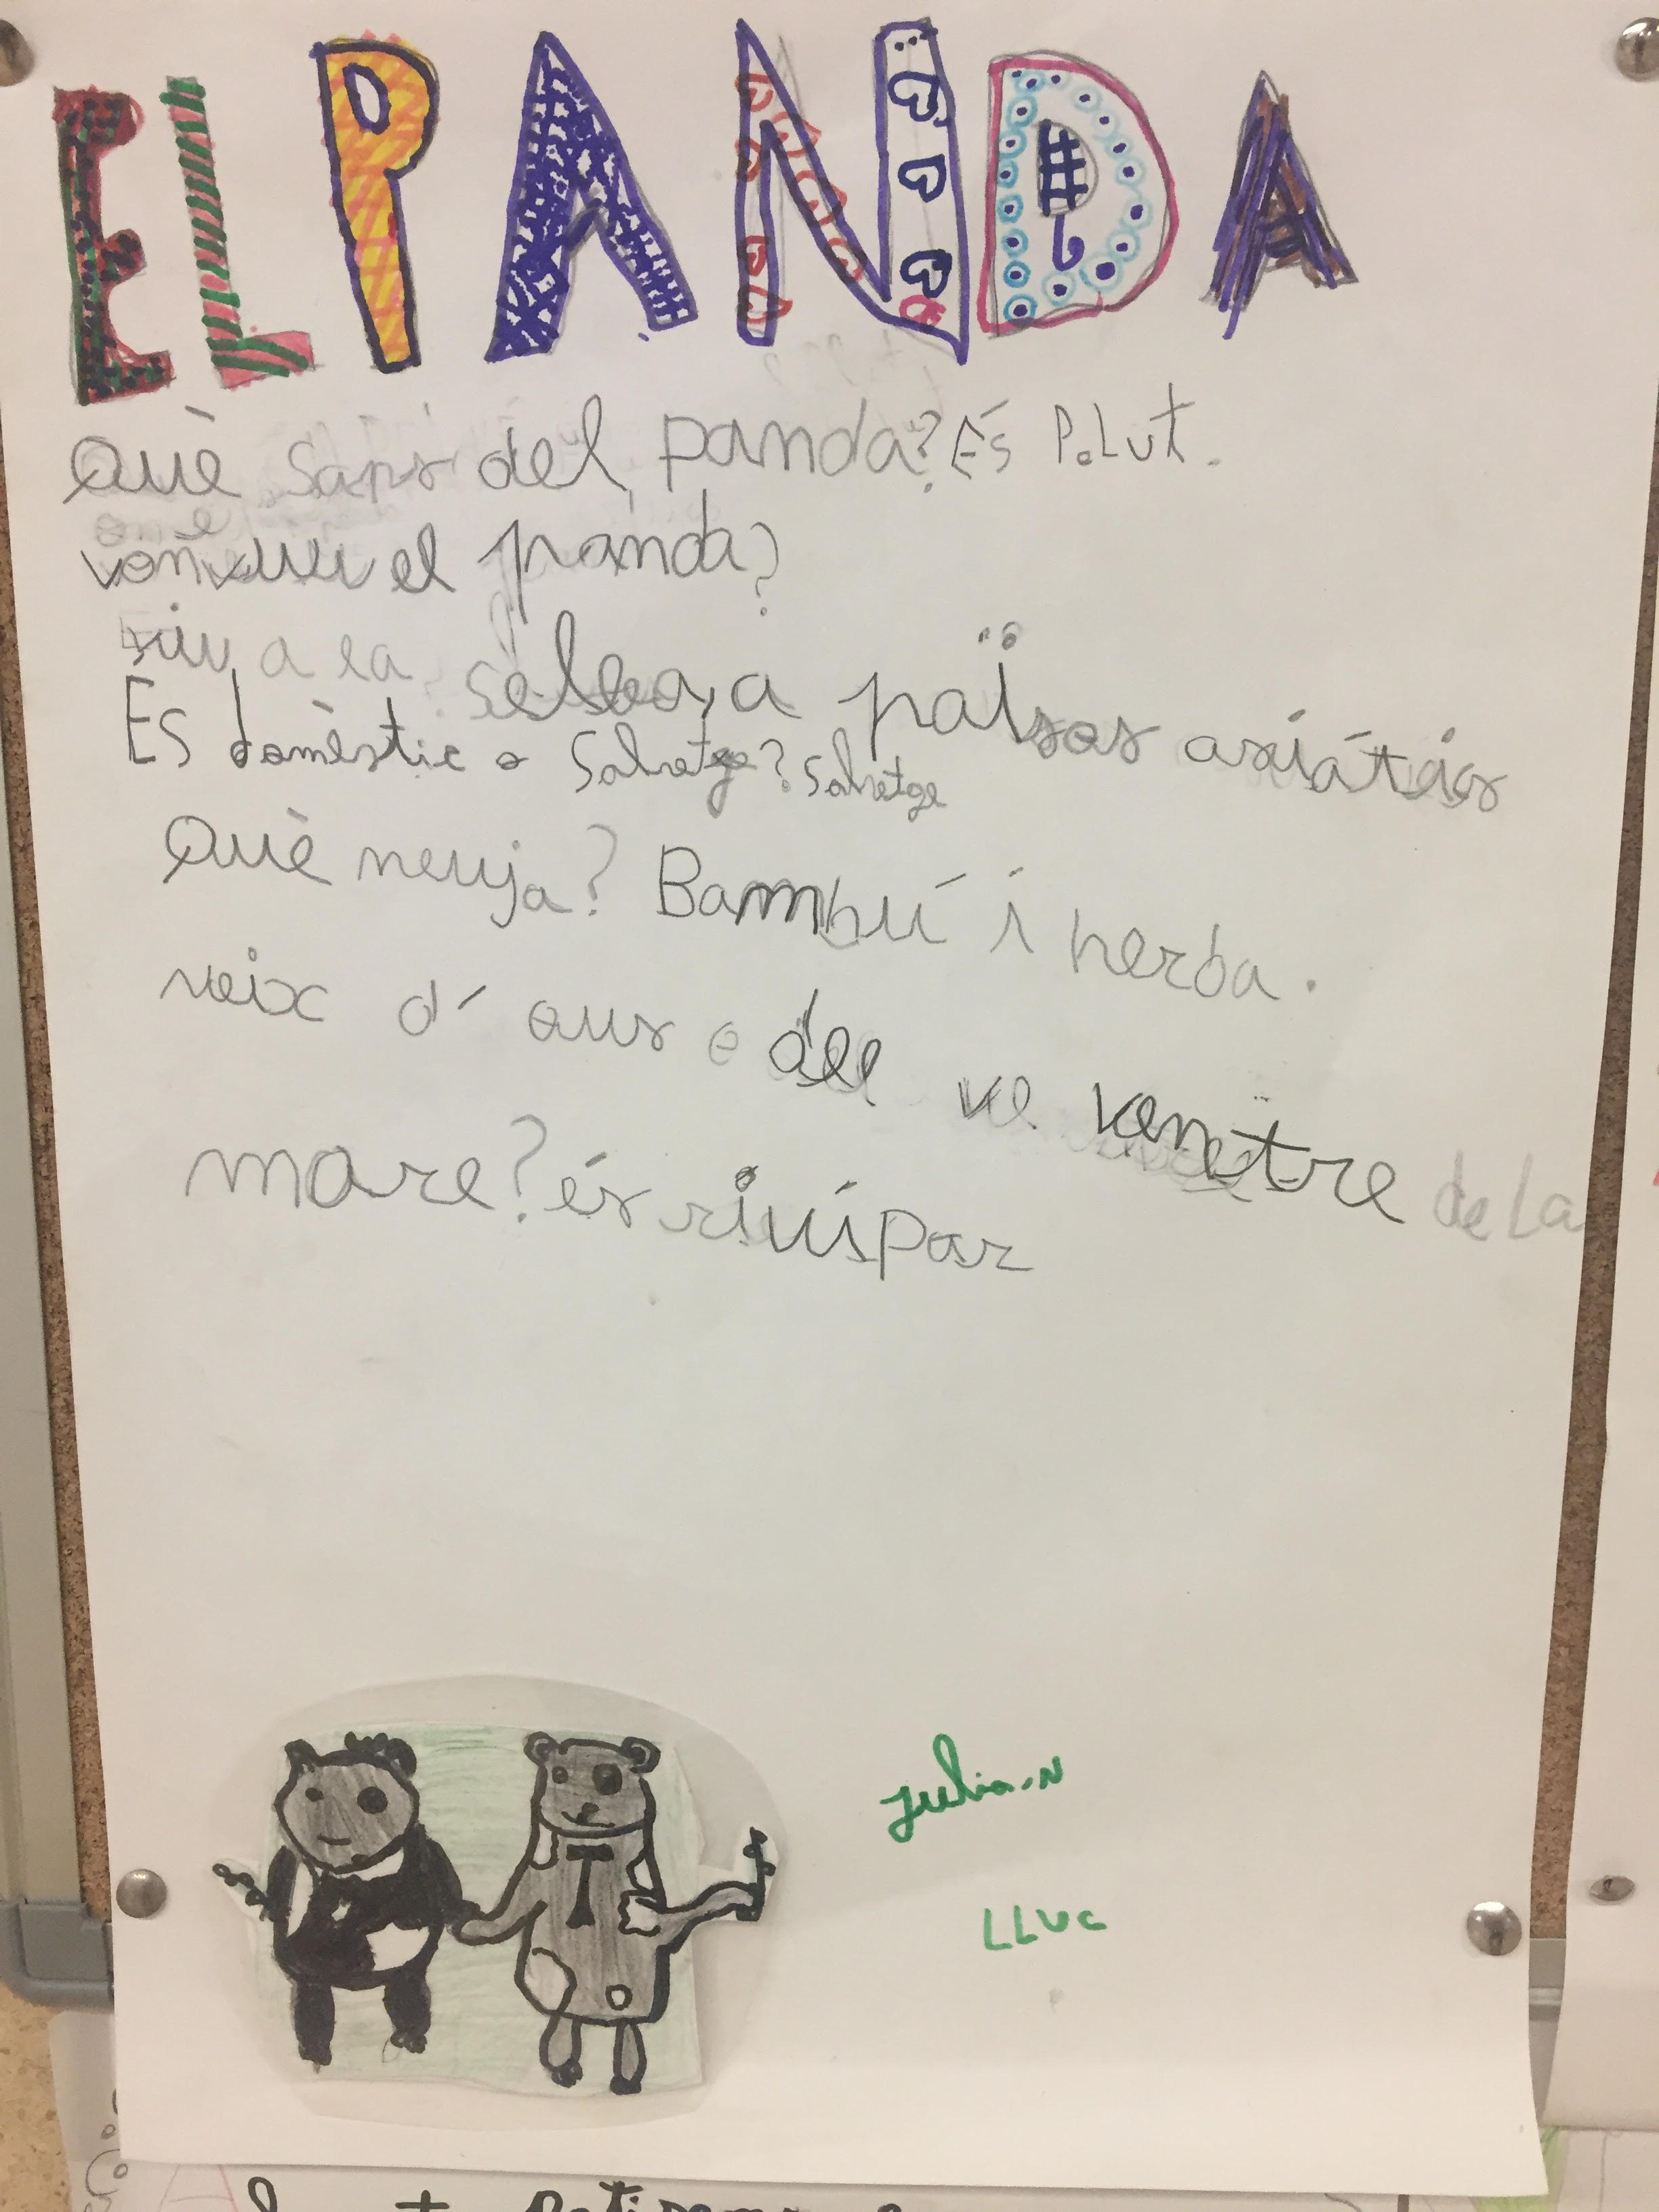 EL PANDA
Què saps del panda? És PeLut.
von viu el panda?
viu a la selva, a països asiátics
És domèstic o Salvatge? Salvatge
Què menja? Bambú i herba.
neix d' ous o del ve ventre de La
mare? és vivípar
julia.N
LLuc